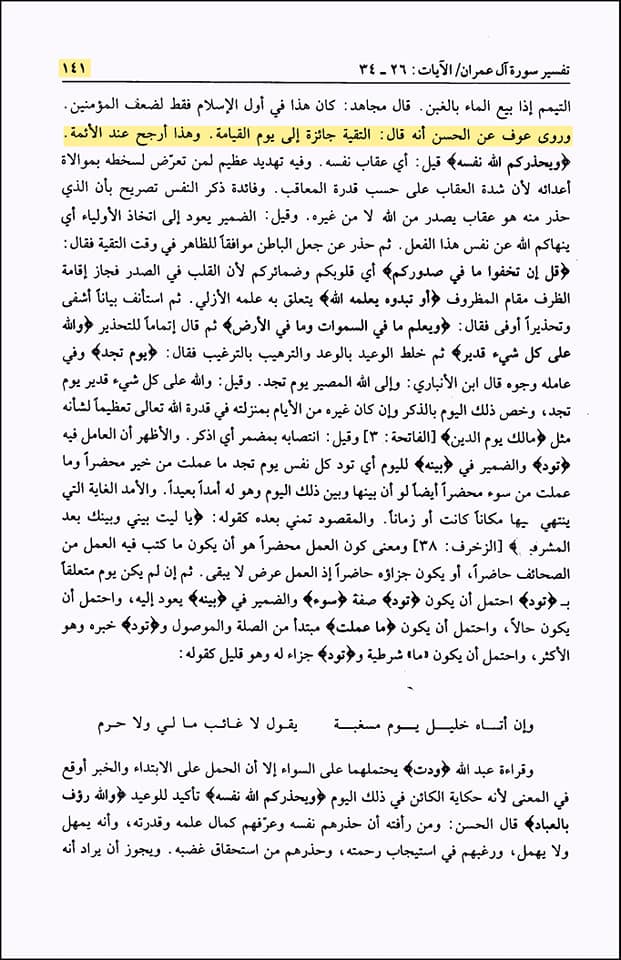 تفسير سورة آل عمران/ الآيات: ٢٦ ـ ٣٤ ١٤١
التيمم إذا بيع الماء بالغبن. قال مجاهد: كان هذا في أول الإسلام فقط لضعف المؤمنين.
وروى عوف عن الحسن أنه قال: التقية جائزة إلى يوم القيامة. وهذا أرجح عند الأئمة.
﴿ويحذركم الله نفسه﴾ قيل: أي عقاب نفسه. وفيه تهديد عظيم لمن تعرّض لسخطه بموالاة
أعدائه لأن شدة العقاب على حسب قدرة المعاقب. وفائدة ذكر النفس تصريح بأن الذي
حذر منه هو عقاب يصدر من الله لا من غيره. وقيل: الضمير يعود إلى اتخاذ الأولياء أي
ينهاكم الله عن نفس هذا الفعل. ثم حذر عن جعل الباطن موافقاً للظاهر في وقت التقية فقال:
﴿قل إن تخفوا ما في صدوركم﴾ أي قلوبكم وضمائركم لأن القلب في الصدر فجاز إقامة
الظرف مقام المظروف ﴿أو تبدوه يعلمه الله﴾ يتعلق به علمه الأزلي. ثم استأنف بياناً أشفى
وتحذيراً أوفى فقال: ﴿ويعلم ما في السموات وما في الأرض﴾ ثم قال إتماماً للتحذير ﴿والله
على كل شيء قدير﴾ ثم خلط الوعيد بالوعد والترهيب بالترغيب فقال: ﴿يوم تجد﴾ وفي
عامله وجوه قال ابن الأنباري: وإلى الله المصير يوم تجد. وقيل: والله على كل شيء قدير يوم
تجد، وخص ذلك اليوم بالذكر وإن كان غيره من الأيام بمنزلته في قدرة الله تعالى تعظيماً لشأنه
مثل ﴿مالك يوم الدين﴾ [الفاتحة: ٣] وقيل: انتصابه بمضمر أي اذكر. والأظهر أن العامل فيه
﴿تود﴾ والضمير في ﴿بينه﴾ لليوم أي تود كل نفس يوم تجد ما عملت من خير محضراً وما
عملت من سوء محضراً أيضاً لو أن بينها وبين ذلك اليوم وهو له أمداً بعيداً. والأمد الغاية التي
ينتهي يها مكاناً كانت أو زماناً. والمقصود تمني بعده كقوله: ﴿يا ليت بيني وبينك بعد
المشرق﴾ [الزخرف: ٣٨] ومعنى كون العمل محضراً هو أن يكون ما كتب فيه العمل من
الصحائف حاضراً، أو يكون جزاؤه حاضراً إذ العمل عرض لا يبقى. ثم إن لم يكن يوم متعلقاً
بـ ﴿تود﴾ احتمل أن يكون ﴿تود﴾ صفة ﴿سوء﴾ والضمير في ﴿بينه﴾ يعود إليه، واحتمل أن
يكون حالاً، واحتمل أن يكون ﴿ما عملت﴾ مبتدأ من الصلة والموصول و﴿تود﴾ خبره وهو
الأكثر، واحتمل أن يكون «ما» شرطية و﴿تود﴾ جزاء له وهو قليل كقوله:
وإن أتـاه خليـل يــوم مسغبـة يقـول لا غـائـب مـا لـي ولا حـرم
وقراءة عبد الله ﴿ودت﴾ يحتملهما على السواء إلا أن الحمل على الابتداء والخبر أوقع
في المعنى لأنه حكاية الكائن في ذلك اليوم ﴿ويحذركم الله نفسه﴾ تأكيد للوعيد ﴿والله رؤف
بالعباد﴾ قال الحسن: ومن رأفته أن حذرهم نفسه وعرّفهم كمال علمه وقدرته، وأنه يمهل
ولا يهمل، ورغبهم في استيجاب رحمته، وحذرهم من استحقاق غضبه. ويجوز أن يراد أنه